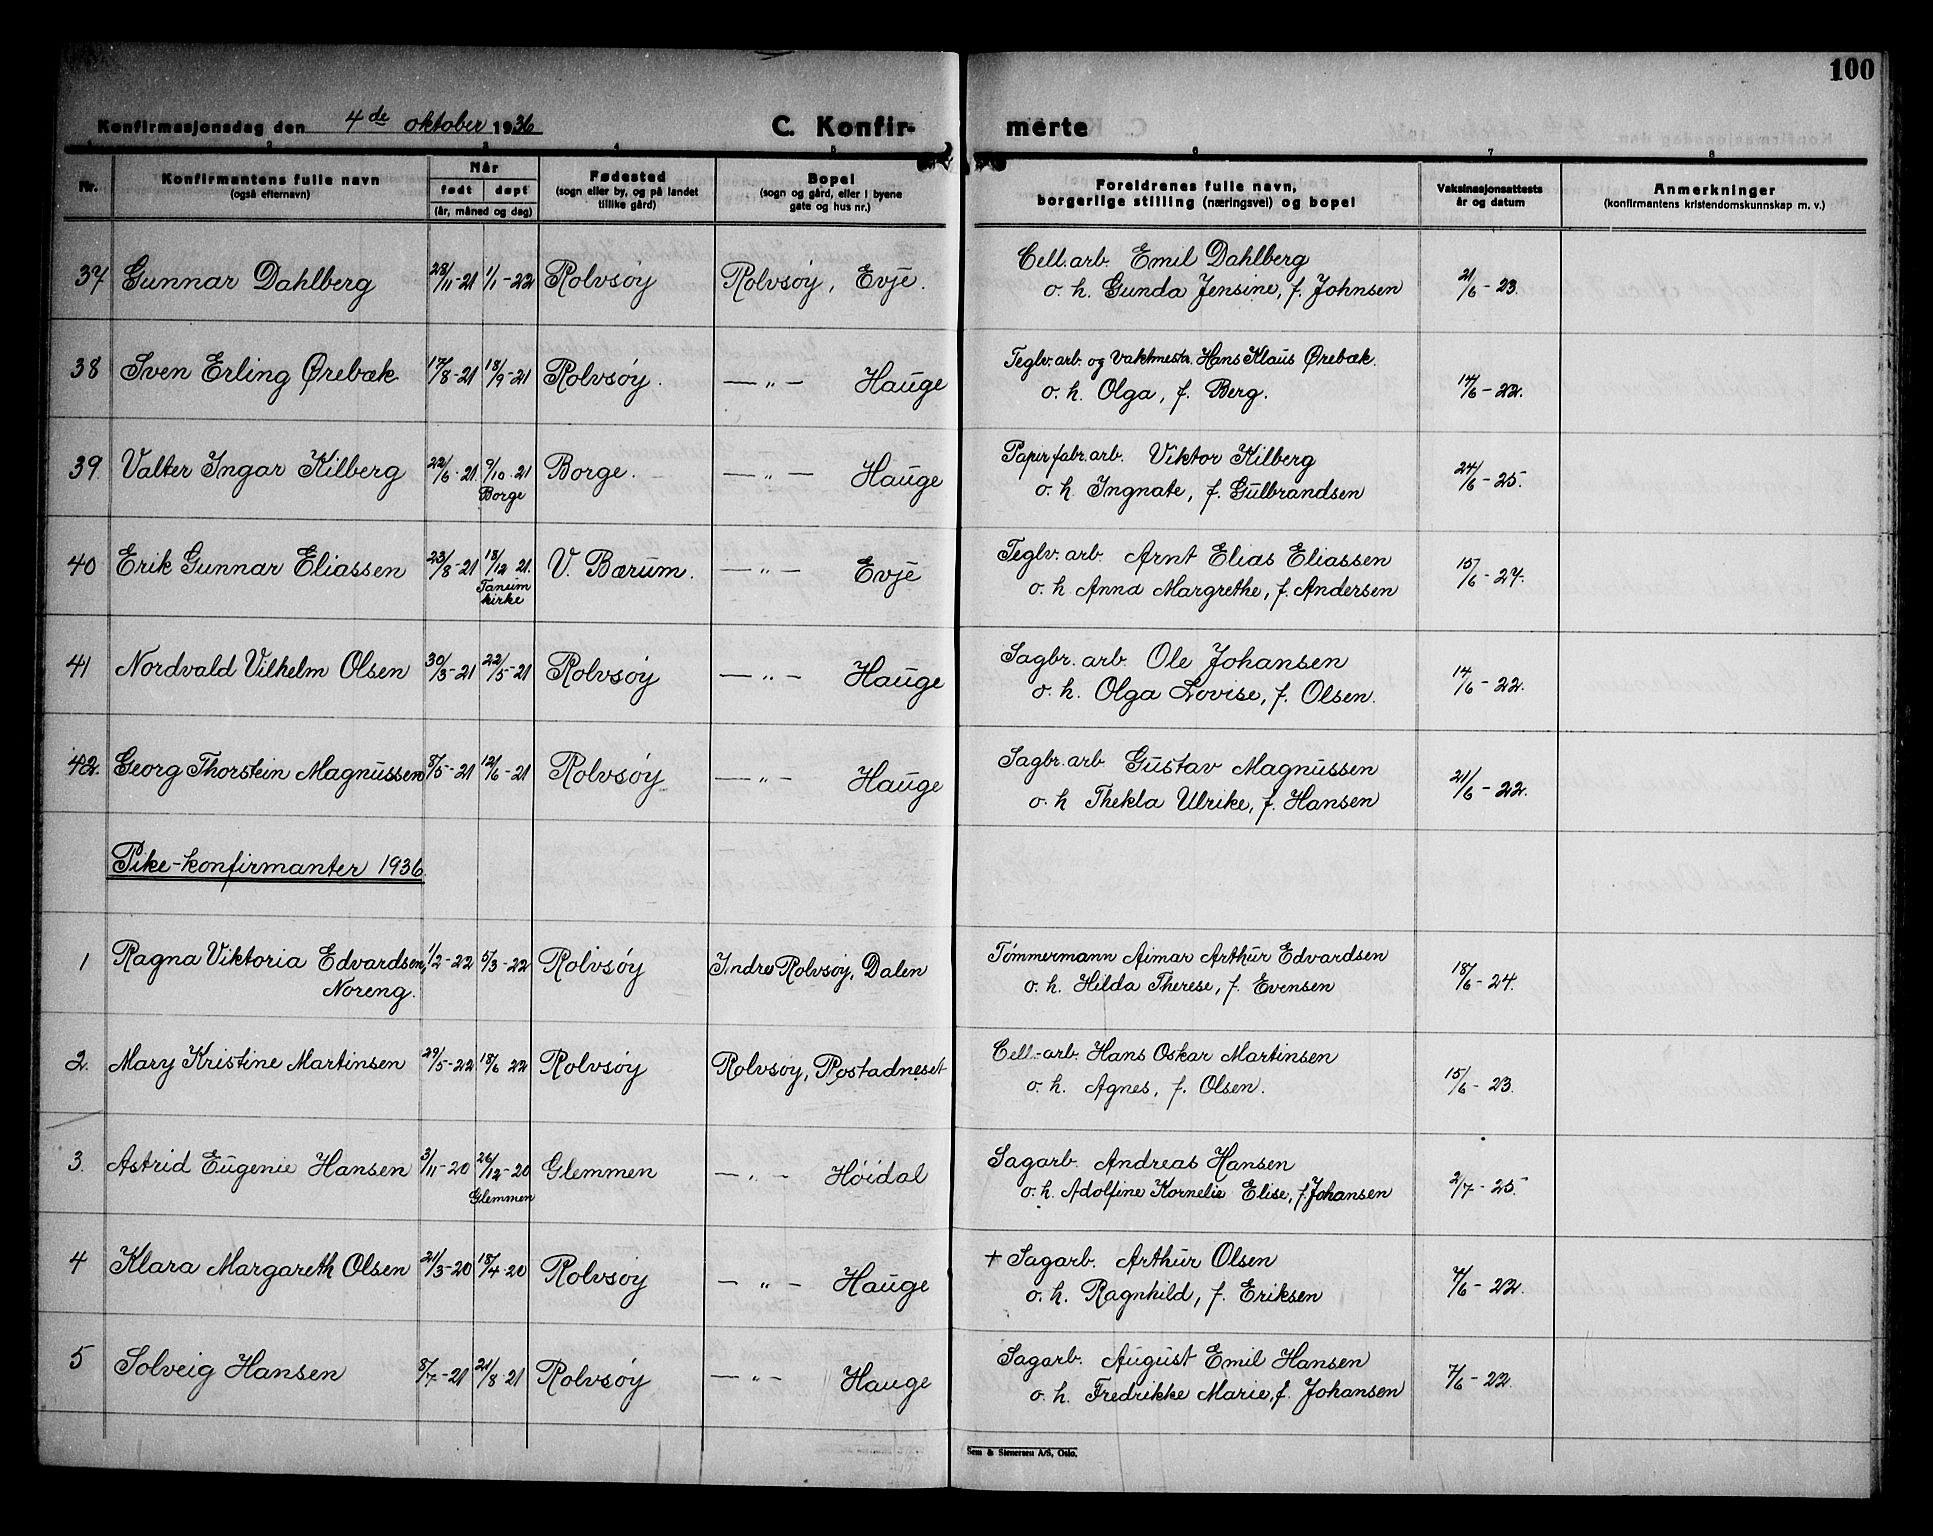 100
Konfirmasjonsdag den 4de oktober 1936 C. Konfir- merte
1 2 3 4 5 6 7 8
Nr. Konfirmantens fulle navn (også efternavn) Når født døpt (år, måned og dag) Fødested (sogn eller by, og på landet tillike gård) Bopel (sogn og gård, eller i byene gate og hus nr.) Foreldrenes fulle navn, borgerlige stilling (næringsvei) og bopel Vaksinasjonsattests år og datum Anmerkninger (konfirmantens kristendomskunnskap m. v.)
37 Gunnar Dahlberg 28/11-21 1/1-22 Rolvsøy Rolvsøy, Evje. Cell.arb. Emil Dahlberg
o. h. Gunda Jensine, f. Johnsen 21/6-23.
38 Sven Erling Ørebæk 17/8-21 18/9-21 Rolvsøy. —„— Hauge Teglv.arb. og vaktmester Hans Klaus Ørebæk.
o. h. Olga, f. Berg. 14/6-22.
39. Valter Ingar Kilberg 22/6-21. 9/10-21 Borge Borge. —„— Hauge Papirfabr.arb. Viktor Kilberg
o. h. Ingnate, f. Gulbrandsen 24/6-25.
40 Erik Gunnar Eliassen 23/8-21 18/12 21. Tanum kirke V. Bærum. —„— Evje Teglv.arb. Arnt Elias Eliassen
o. h. Anna Margrethe, f. Andersen 15/6-24.
41 Nordvald Vilhelm Olsen 30/3-21 22/5-21 Rolvsøy —„— Hauge Sagbr.arb. Ole Johansen
o. h. Olga Lovise, f. Olsen. 14/6-22.
42. Georg Thorstein Magnussen 8/5-21 12/6-21 Rolvsøy —„— Hauge Sagbr.arb Gustav Magnussen
o. h Thekla Ulrike, f. Hansen 21/6-22.
Pike-konfirmanter 1936.
1 Ragna Viktoria Edvardsen, 1/2-22 5/3-22 Rolvsøy Indre Rolvsøy, Dalen Tømmermann Aimar Arthur Edvardsen
Noreng. o. h. Hilda Therese, f. Evensen 18/6-24.
2. Mary Kristine Martinsen 29/5-22 18/6 22 Rolvsøy Rolvsøy, Rostadneset Cell.-arb. Hans Oskar Martinsen
o. h. Agnes, f. Olsen. 15/6-23.
3. Astrid Eugenie Hansen 3/11-20 26/12-20 Glemmen Glemmen —„— Høidal Sagarb. Andreas Hansen
o. h. Adolfine Kornelie Elise, f. Johansen 2/7-25.
4 Klara Margareth Olsen 21/3-20 18/4-20 Rolvsøy —„— Hauge + Sagarb. Arthur Olsen
o. h. Ragnhild, f. Eriksen 7/6-22.
5 Solveig Hansen 8/7-21 21/8-21 Rolvsøy —„— Hauge Sagarb. August Emil Hansen
o. h. Fredrikke Marie, f. Johansen 7/6-22.
Sem & Stenersen A/S, Oslo.